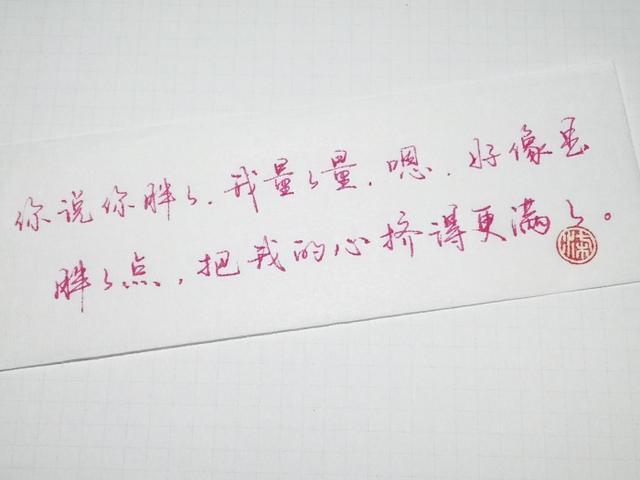 你说你胖了，我量了量，嗯，好像是
胖了点，把我的心挤得更满了。